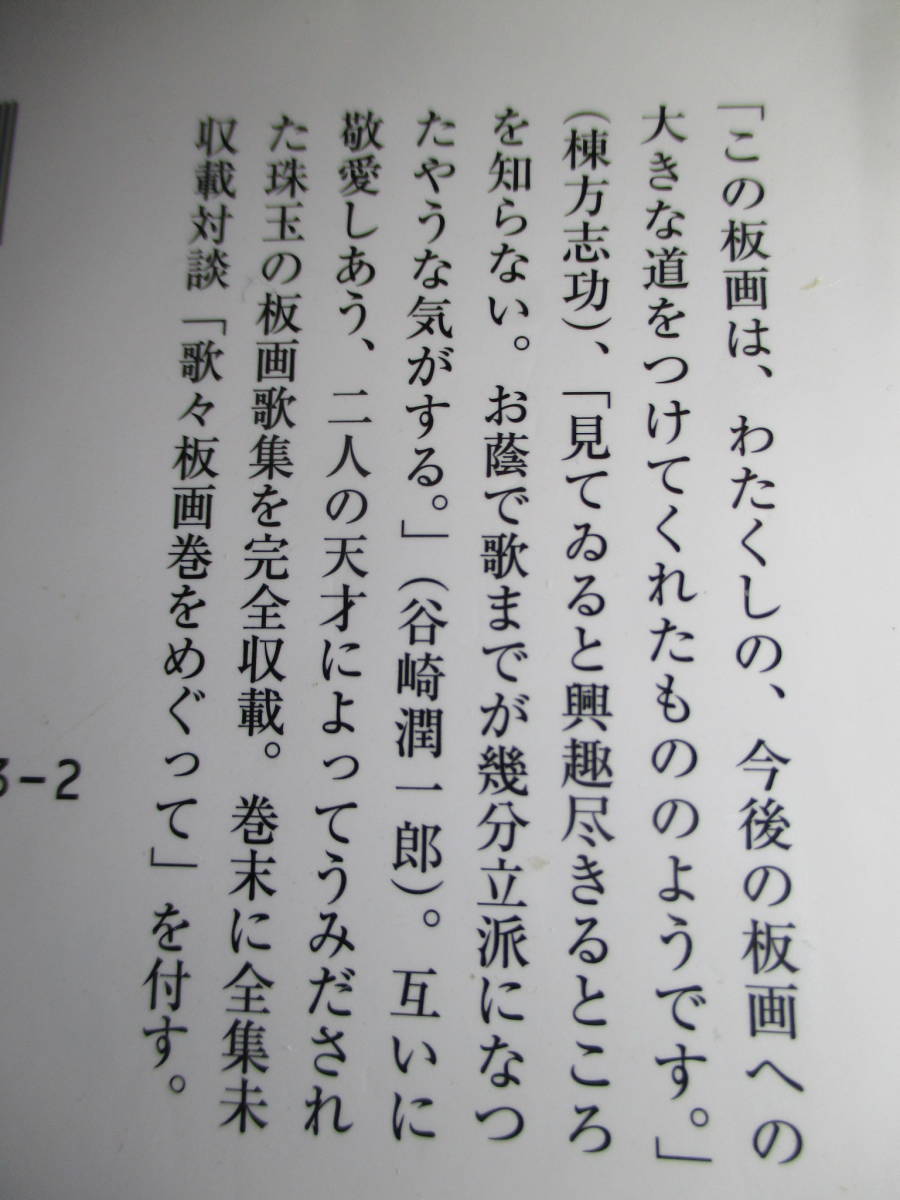 「この板画は、わたくしの、今後の板画への
大きな道をつけてくれたもののようです。」
(棟方志功)、「見てゐると興趣尽きるところ
を知らない。お蔭で歌までが幾分立派になつ
たやうな気がする。」(谷崎潤一郎)。互いに
敬愛しあう、二人の天才によってうみだされ
た珠玉の板画歌集を完全収載。巻末に全集未
収載対談「歌々板画巻をめぐって」を付す。
-2